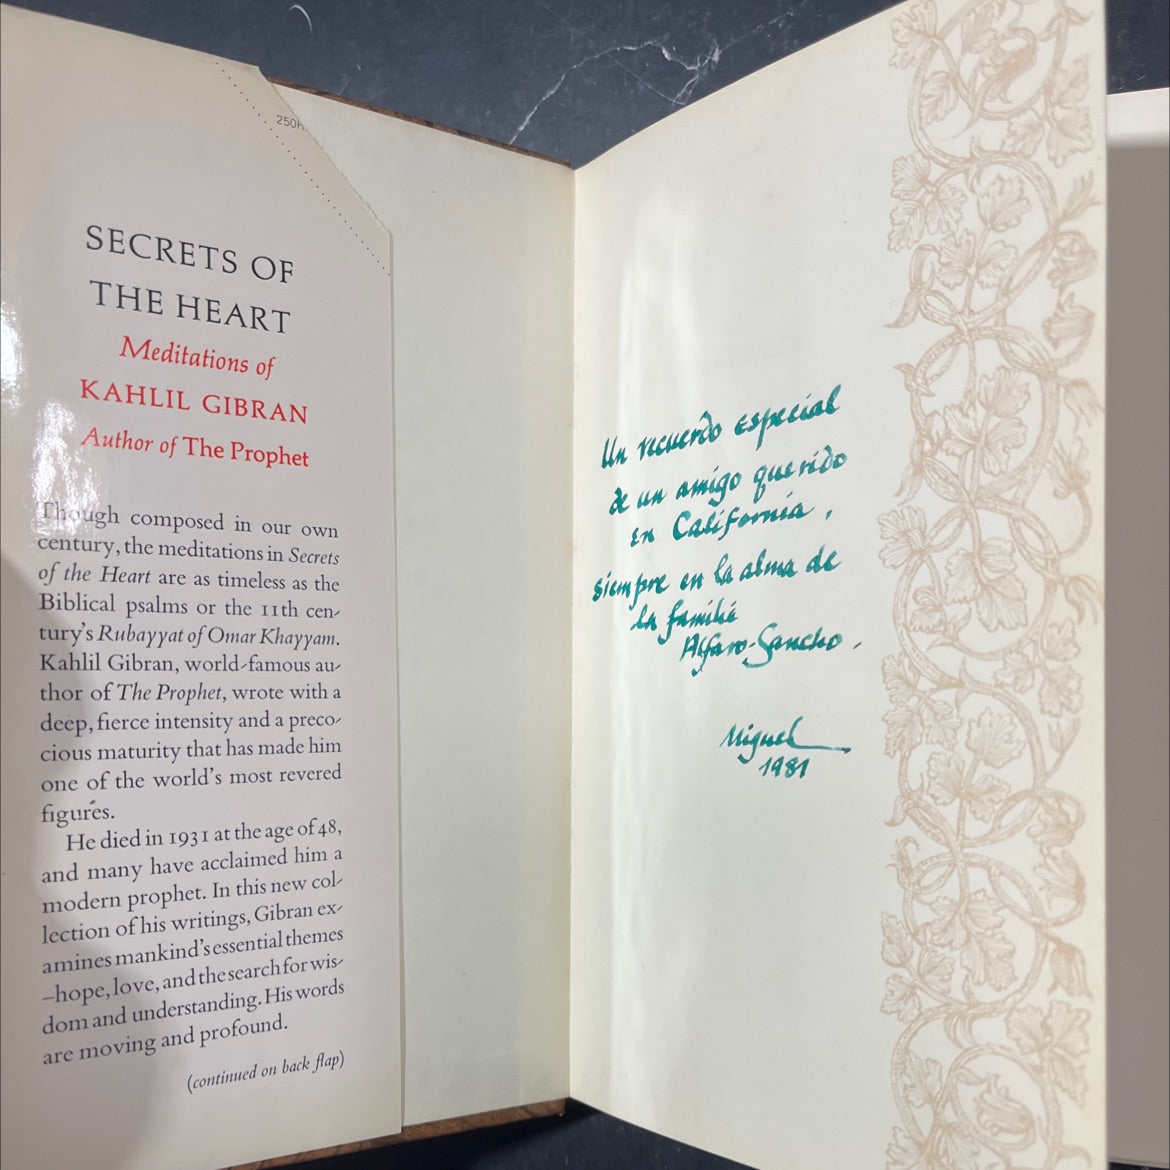 250h
SECRETS OF
THE HEART
Meditations of
KAHLIL GIBRAN
Author of The Prophet
Though composed in our own
century, the meditations in Secrets
of the Heart are as timeless as the
Biblical psalms or the 11th cen-
tury's Rubayyat of Omar Khayyam.
Kahlil Gibran, world-famous au-
thor of The Prophet, wrote with a
deep, fierce intensity and a preco-
cious maturity that has made him
one of the world's most revered
figures.
He died in 1931 at the age of 48,
and many have acclaimed him a
modern prophet. In this new col-
lection of his writings, Gibran ex-
amines mankind's essential themes
–hope, love, and the search for wis-
dom and understanding. His words
are moving and profound.
(continued on back flap)
Un recuerdo especial
de un amigo querido
en California,
siempre en la alma de
la familia
Alfaro-Sancho.
Miguel
1981